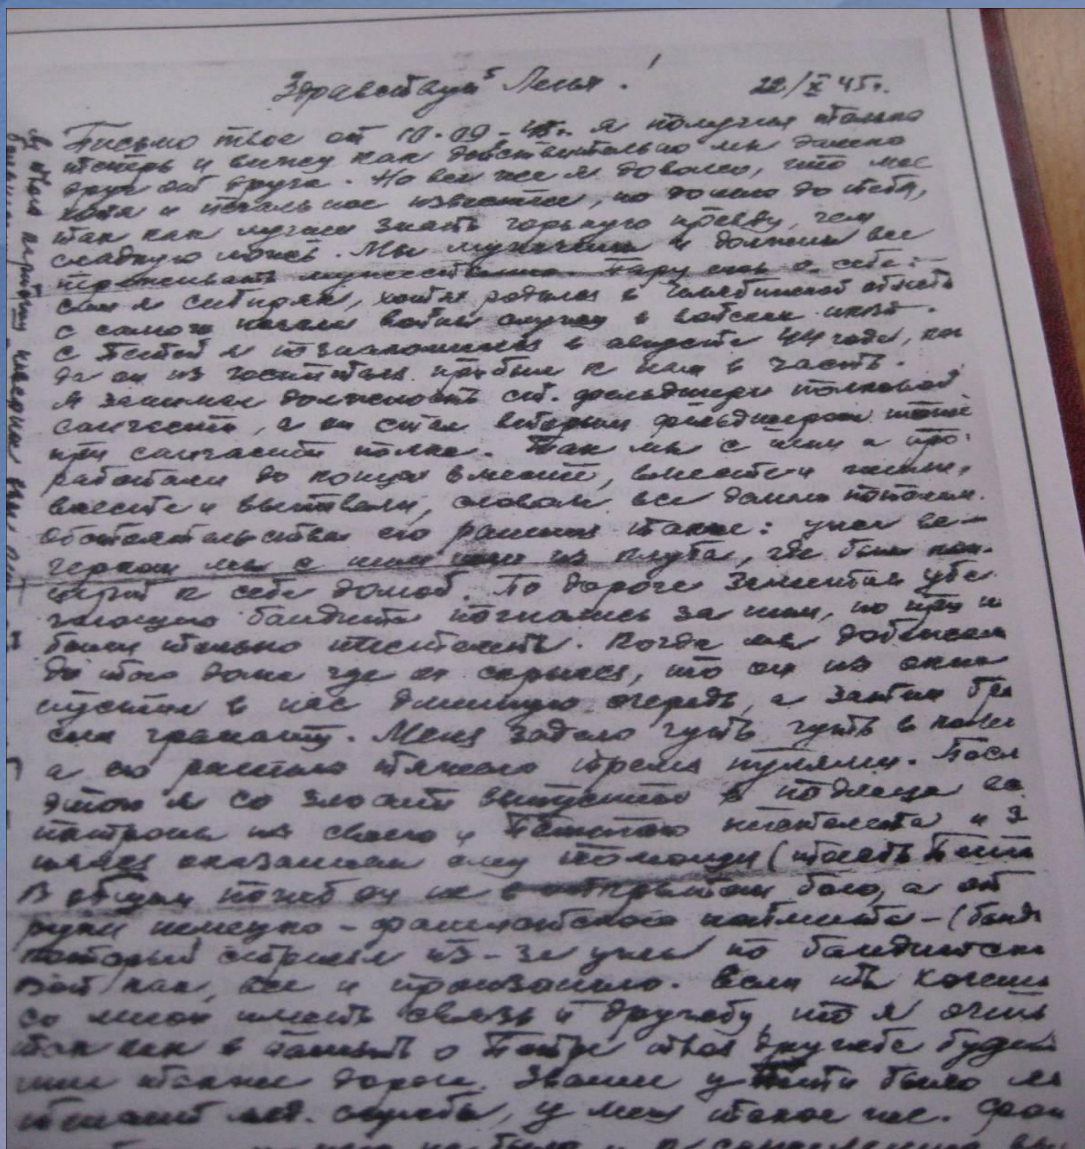 Здравствуй Леня!
22/X 45г.
Письмо твое от 10-09-45г. я получил только
теперь и вижу как действительно мы далеко
друг от друга. Но все же я доволен, что мое
хотя и печальное известие, но дошло до тебя,
так как лучше знать горькую правду, чем
сладкую ложь. Мы мужчины и должны все
переживать мужественно. Пару слов о себе:
сам я сибиряк, хотя родился в Челябинской области
с самого начала войны служил в войсках НКВД.
С Петей я познакомился в августе 44 года, ког
да он из госпиталя прибыл к нам в часть.
Я занимал должность ст. фельдшера полковой
санчасти, а он стал вторым фельдшером тоже
при санчасти полка. Так мы с ним и про-
работали до конца вместе, вместе и
вместе и выпивали, словом все делили пополам.
Обстоятельства его ранения такие: уже ве-
чером мы с ним шли из клуба, где был кон-
церт к себе домой. По дороге заметили убе
гающего бандита погнались за ним, но при н
были только пистолеты. Когда мы добежали
до того дома где он скрылся, то он из окна
пустил в нас длинную очередь, а затем бро
сил гранату. Меня задело чуть чуть в
а его ранило тяжело тремя пулями. Посл
этого я со злости выпустил в подлеца все
патроны из своего и Петиного пистолета и з
оказанием ему помощи (
В общем погиб он не в открытом бою, а от
руки немецко-фашистского наймита - (банд
который стрелял из-за угла по бандитски
Вот как, все и произошло. Если ты хочешь
со мной иметь связь и дружбу, то я очень
так как в память о Петре твоя дружба буде
мне также дорога. Звание у Пети было ле
тенант мед. службы, у меня такое же.